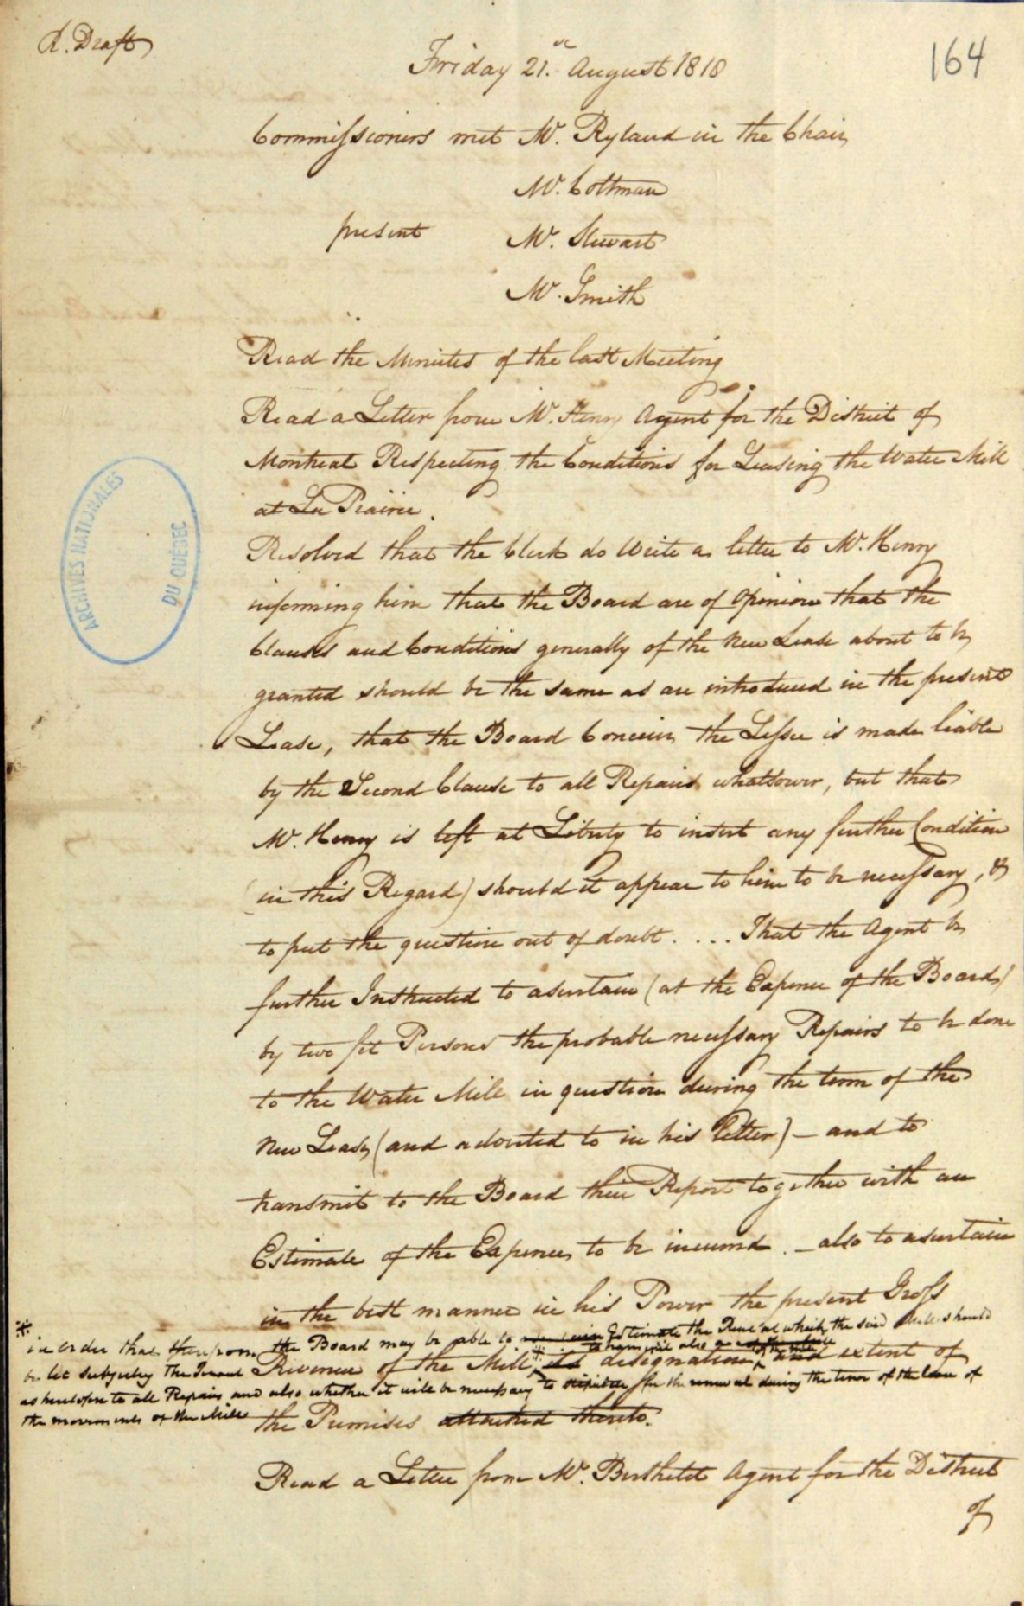 d. Draft
164
Friday 21st August 1818
Commissioners met Mr. Ryland in the Chair
Mr. Coltman
present Mr. Stewart
Mr. Smith
Read the Minutes of the last Meeting
Read a Letter from Mr. Henry Agent for the District of
Montreal Respecting the Conditions for Leasing the Water Mill
at La Prairie.
Resolved that the Clerk do Write a letter to Mr. Henry
informing him that the Board are of Opinion that the
Clauses and Conditions generally of the New Lease about to be
granted should be the same as are introduced in the present
Lease, that the Board Conceive the Lessee is made liable
by the Second Clause to all Repairs whatsoever, but that
Mr. Henry is left at Liberty to insert any further Condition
(in this Regard) should it appear to him to be necessary, &
to put the question out of doubt. ... That the Agent be
further Instructed to asertain (at the Expence of the Board)
by two fit Persons the probable necessary Repairs to be done
to the Water Mill in question during the term of the
New Lease (and adverted to in his Letter) - and to
transmit to the Board their Report together with an
Estimate of the Expences to be incurred. - also to asertain
in the best manner in his Power the present Gross
Revenue of the Mill, designation and extent of
the Premises attached thereto.
in order that the Board may be able to Estimate the Rent at which the said Mill should
be let subjecting the Tenant
as heretofore to all Repairs and also whether it will be necessary to stipulate for the renewal during the term of the lease of
the movements of the Mill
to transmit also
Read a Letter from Mr. Berthelet Agent for the District
of
ARCHIVES NATIONALES
DU QUÉBEC